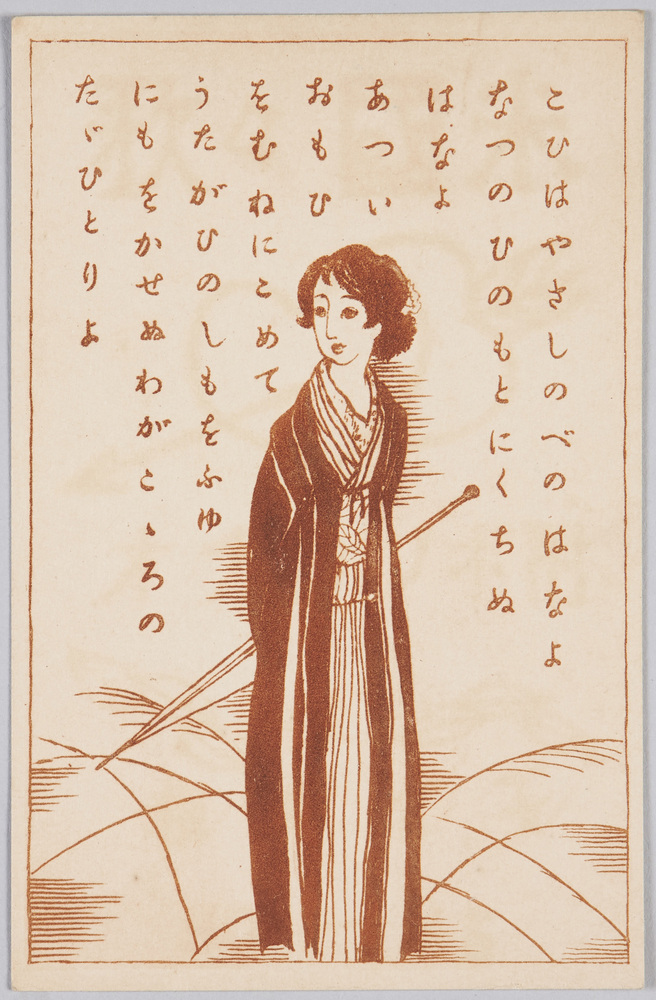 こひはやさしのべのはなよ
なつのひのもとにくちぬ
はなよ
あつい
おもひ
をむねにこめて
うたがひのしもをふゆ
にもをかせぬわがこゝろの
たゞひとりよ